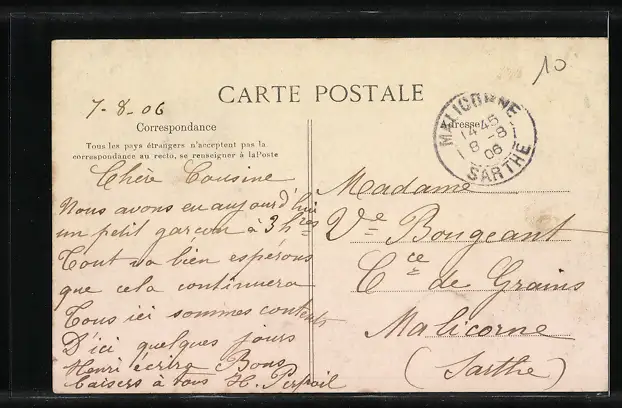 10
7-8-06
CARTE POSTALE
Correspondance
Tous les pays étrangers n'acceptent pas la
correspondance au recto, se renseigner à la Poste
Adresse
MALICORNE
14 45
8 - 8
06
SARTHE
Chère Cousine
Nous avons eu aujourd'hui
un petit garçon à 3 hres
Tout va bien espérons
que cela continuera
Tous ici sommes contents
D'ici quelques jours
Henri écrira Bons
baisers à tous H.
Madame
Ve Bougeant
Cce de Grains
Malicorne
(Sarthe)